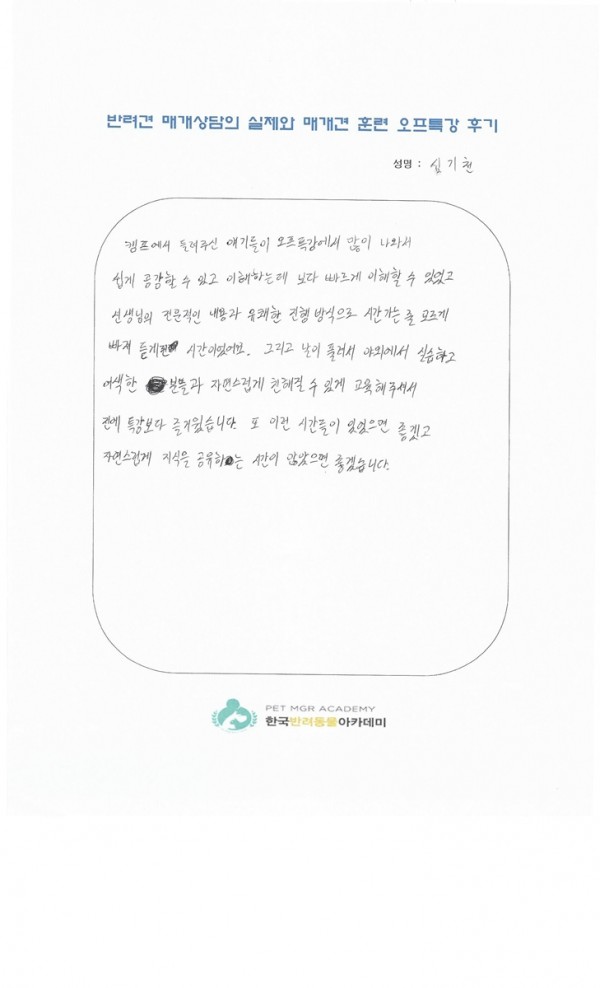 반려견 매개상담의 실제와 매개견 훈련 오프특강 후기
성명 : 심기천
캠프에서 들려주신 얘기들이 오프특강에서 많이 나와서
쉽게 공감할 수 있고 이해하는데 보다 빠르게 이해할 수 있었고
선생님의 전문적인 내용과 유쾌한 진행 방식으로 시간가는 줄 모르게
빠져 듣게된 시간이었어요. 그리고 날이 풀려서 야외에서 실습하고
어색한 분들과 자연스럽게 친해질 수 있게 교육해주셔서
전에 특강보다 즐거웠습니다. 또 이런 시간들이 있었으면 좋겠고
자연스럽게 지식을 공유하는 시간이 많았으면 좋겠습니다.
PET MGR ACADEMY
한국반려동물아카데미